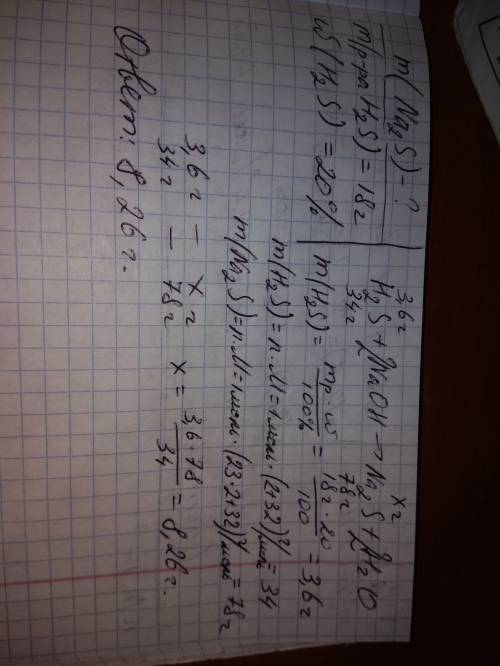 m(Na₂S) - ?
m(р-ра H₂S) = 18г
ω(H₂S) = 20%
3,6г xг
H₂S + 2NaOH → Na₂S + 2H₂O
34г 78г
m(H₂S) = mр·ω / 100% = 18г·20 / 100 = 3,6г
m(H₂S) = n·M = 1моль·(2+32) г/моль = 34
m(Na₂S) = n·M = 1моль·(23·2+32) г/моль = 78г
3,6г — xг x = 3,6·78 / 34 = 8,26г.
34г — 78г
Ответ: 8,26г.